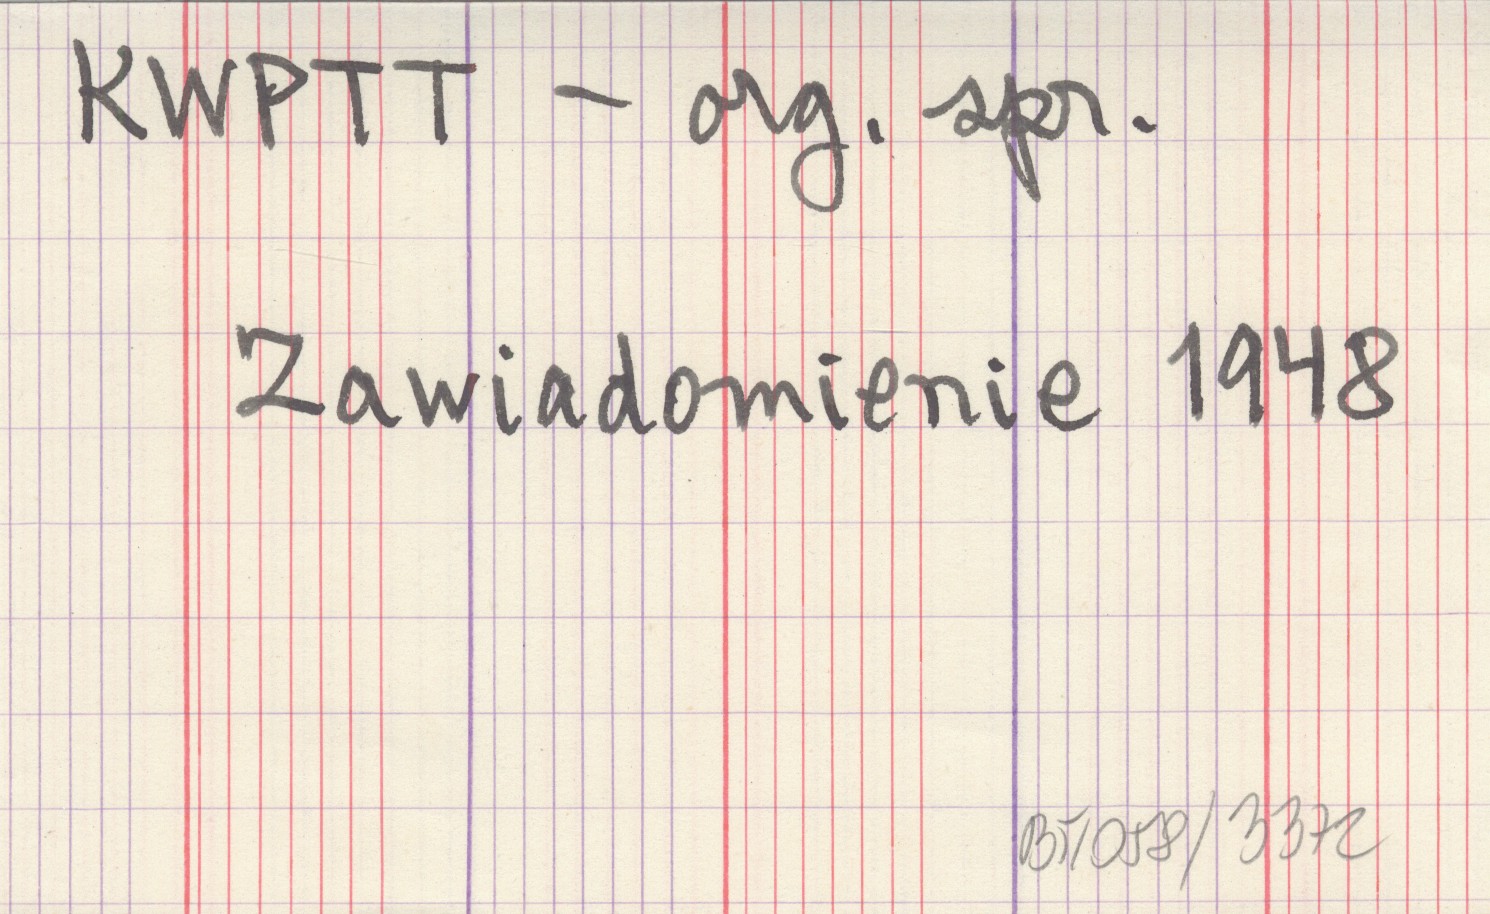 KWPTT - org. spr.
Zawiadomienie 1948
BT/058/3372